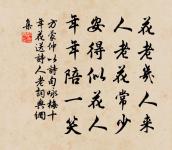 花老幾人来
人老花常少
安得似花人
年年陪一笑
方蒙仲以詩句咏梅十
年花送詩人老詞典網
集